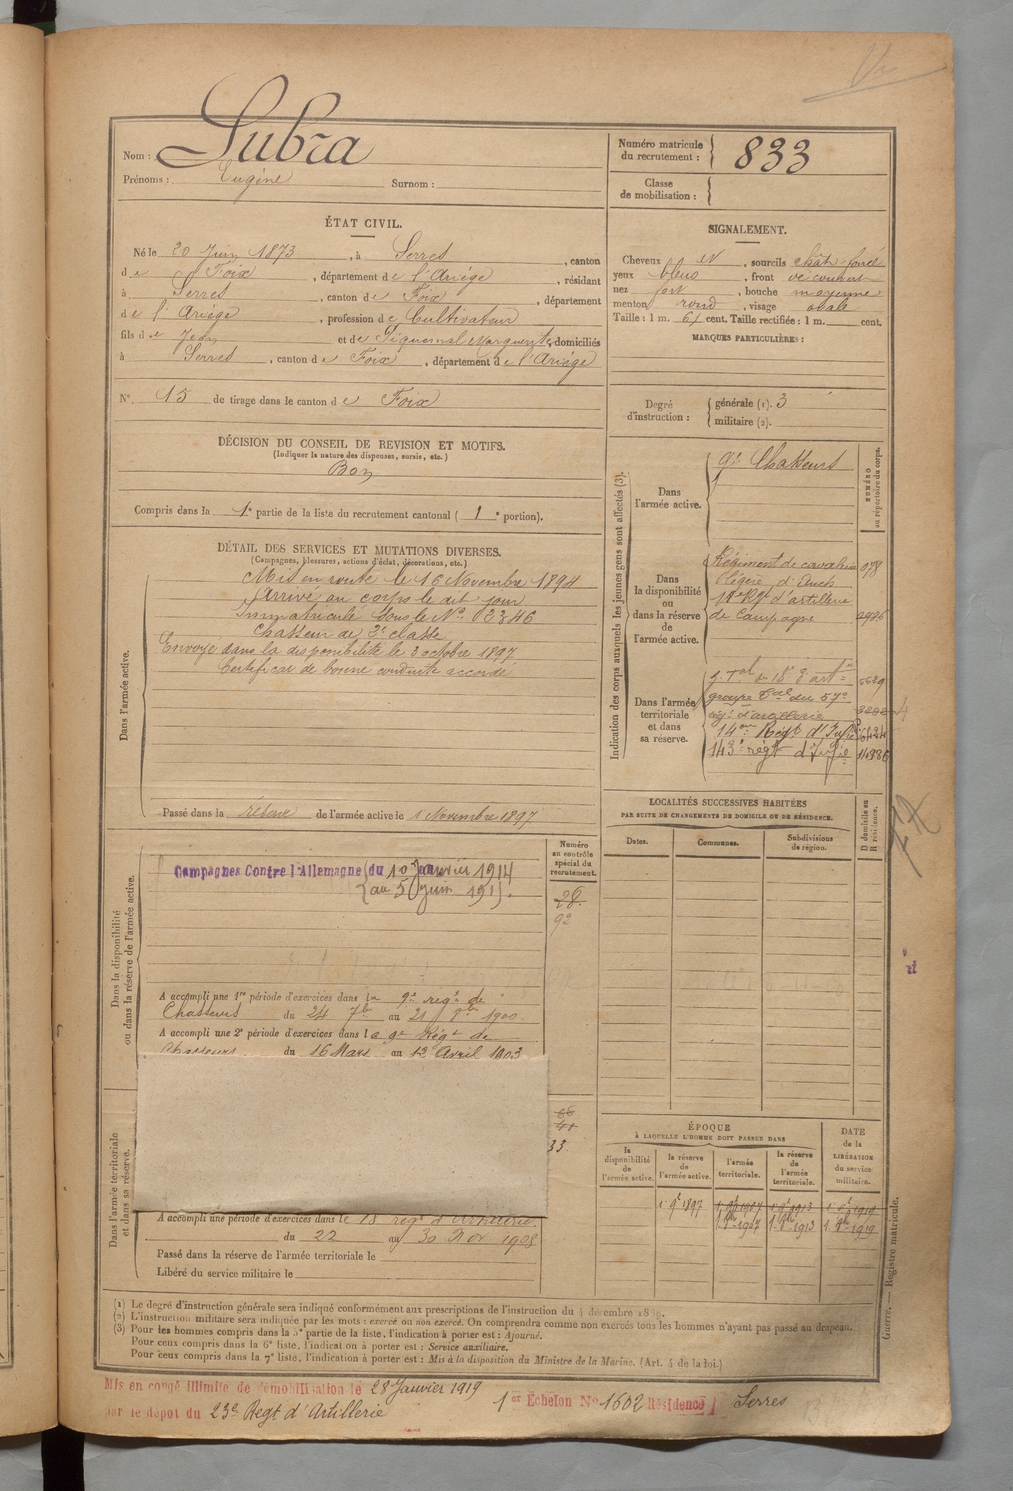 Nom : Lubra
Prénoms : Eugène Surnom :
Numéro matricule du recrutement : 833
Classe de mobilisation :
ÉTAT CIVIL.
Né le 20 Juin 1873, à Serres, canton
de Foix, département de l'Ariège, résidant
à Serres, canton de Foix, département
de l'Ariège, profession de Cultivateur
fils de Jean et de Marguerite, domiciliés
à Serres, canton de Foix, département de l'Ariège
N° 15 de tirage dans le canton de Foix
SIGNALEMENT.
Cheveux et, sourcils chât. foncé
yeux bleus, front découvert
nez fort, bouche moyenne
menton rond, visage ovale
Taille : 1 m. 61 cent. Taille rectifiée : 1 m. cent.
MARQUES PARTICULIÈRES :
Degré d'instruction : générale (1). 3
militaire (2).
DÉCISION DU CONSEIL DE REVISION ET MOTIFS.
(Indiquer la nature des dispenses, sursis, etc.)
Bon
Compris dans la 1e partie de la liste du recrutement cantonal ( 1e portion).
DÉTAIL DES SERVICES ET MUTATIONS DIVERSES.
(Campagnes, blessures, actions d'éclat, décorations, etc.)
Dans l'armée active.
Mis en route le 16 Novembre 1894
Arrivé au corps le dit jour
Immatriculé sous le No 2346
Chasseur de 2e classe
Envoyé dans la disponibilité le 3 octobre 1897
Certificat de bonne conduite accordé
Passé dans la réserve de l'armée active le 1 Novembre 1897
Indication des corps auxquels les jeunes gens sont affectés (3).
NUMÉRO au répertoire du corps.
Dans l'armée active.
9e Chasseurs
Dans la disponibilité ou dans la réserve de l'armée active.
Régiment de cavalerie 078
légère d'Auch
18e Rgt d'artillerie
de Campagne
Dans l'armée territoriale et dans sa réserve.
groupe tal du 57e
régt d'artillerie
14me Régt d'Infie
143e régt d'Infie 14886
LOCALITÉS SUCCESSIVES HABITÉES
PAR SUITE DE CHANGEMENTS DE DOMICILE OU DE RÉSIDENCE.
Dates. Communes. Subdivisions de région. D domicile ou R résidence.
Dans la disponibilité ou dans la réserve de l'armée active.
Numéro au contrôle spécial du recrutement.
Campagnes Contre l'Allemagne du 10 Janvier 1914
au 5 Juin 191
28
92
A accompli une 1re période d'exercices dans le 9e régt de
Chasseurs du 24 7bre au 21 8bre 1900.
A accompli une 2e période d'exercices dans le 9e Régt de
Chasseurs du 16 Mars au 12 Avril 1903
33
Dans l'armée territoriale et dans sa réserve.
A accompli une période d'exercices dans le 18 régt d'Artillerie
du 22 au 30 Nov 1908
Passé dans la réserve de l'armée territoriale le
Libéré du service militaire le
ÉPOQUE
À LAQUELLE L'HOMME DOIT PASSER DANS
DATE de la LIBÉRATION du service militaire.
la disponibilité de l'armée active. la réserve de l'armée active. l'armée territoriale. la réserve de l'armée territoriale.
1 9e 1897 1 9e 1907 1 9e 1913 1 9e 1919
1. 8bre 1907 1. 8bre 1913 1. 8bre 1919
Guerre. — Registre matricule.
(1) Le degré d'instruction générale sera indiqué conformément aux prescriptions de l'instruction du 4 décembre 1889.
(2) L'instruction militaire sera indiquée par les mots : exercé ou non exercé. On comprendra comme non exercés tous les hommes n'ayant pas passé au drapeau.
(3) Pour les hommes compris dans la 5e partie de la liste, l'indication à porter est : Ajourné.
Pour ceux compris dans la 6e liste, l'indication à porter est : Service auxiliaire.
Pour ceux compris dans la 7e liste, l'indication à porter est : Mis à la disposition du Ministre de la Marine. (Art. 4 de la loi.)
Mis en congé illimité de démobilisation le 28 Janvier 1919
par le dépôt du 23e Regt d'Artillerie
1er Echelon No 1602 Résidence Serres